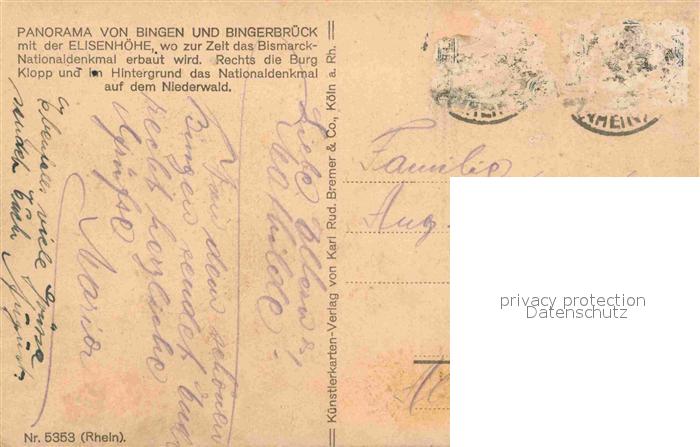 PANORAMA VON BINGEN UND BINGERBRÜCK
mit der ELISENHÖHE, wo zur Zeit das Bismarck-
Nationaldenkmal erbaut wird. Rechts die Burg
Klopp und im Hintergrund das Nationaldenkmal
auf dem Niederwald.
Liebe Eltern &
Mathilde!
Von dem schönen
Bingen sendet Euch
recht herzliche
Grüße
Maria
Ebenso viele Grüsse
sendet Euch August.
Nr. 5353 (Rhein).
Künstlerkarten-Verlag von Karl Rud. Bremer & Co., Köln a. Rh.
RHEIN
Familie
Aug.
privacy protection
Datenschutz